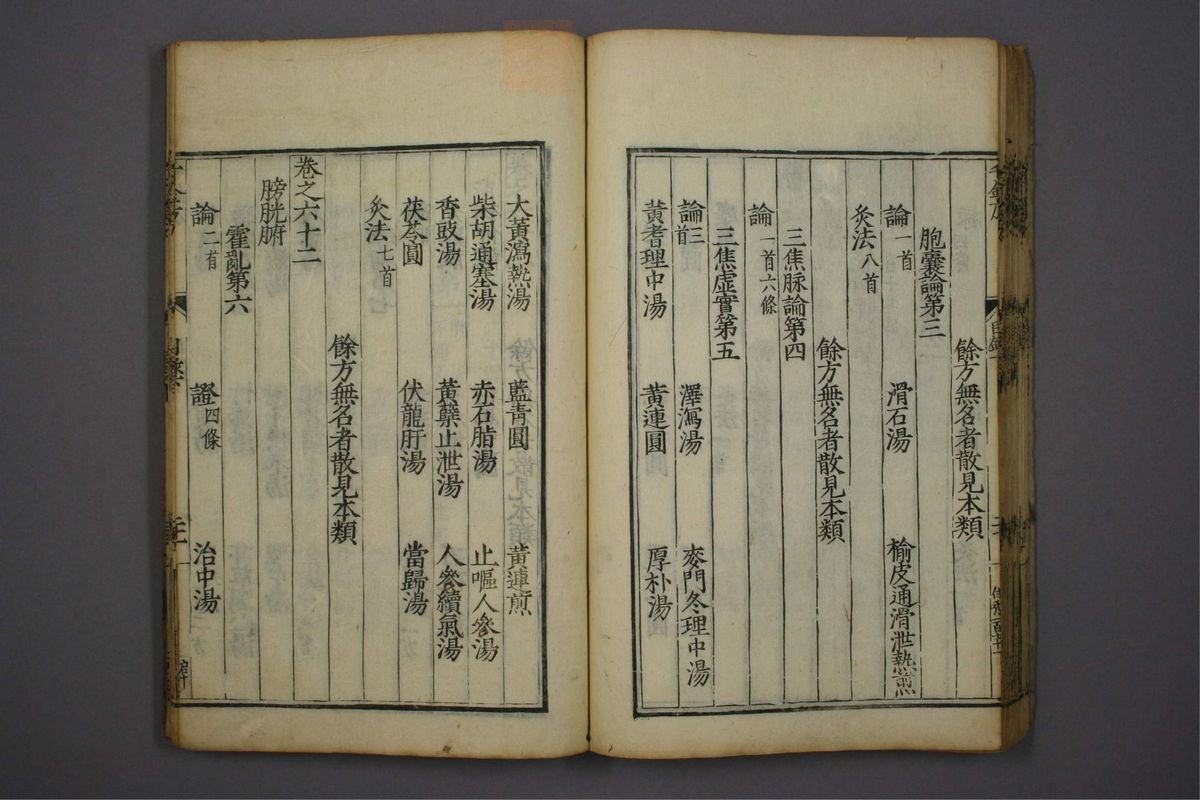 餘方無名者散見本類
胞囊論第三
論一首 滑石湯 榆皮通滑泄熱煎
灸法八首
餘方無名者散見本類
三焦脉論第四
論一首六條
三焦虛實第五
論三首 澤瀉湯 麥門冬理中湯
黃耆理中湯 黃連圓 厚朴湯
大黃瀉熱湯 藍青圓 黃連煎
柴胡通塞湯 赤石脂湯 止嘔人參湯
香豉湯 黃蘗止泄湯 人參續氣湯
茯苓圓 伏龍肝湯 當歸湯
灸法七首
餘方無名者散見本類
卷之六十二
膀胱腑
霍亂第六
論二首 證四條 治中湯